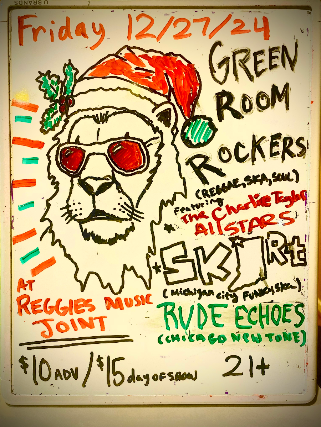 Friday 12/27/24
GREEN
ROOM
ROCKERS
(REGGAE, SKA, SOUL)
featuring
The Charlie Taylor
All STARS
SKIRt
(Michigan city FUNKY SKA)
AT
REGGIES MUSIC
JOINT
RUDE ECHOES
(CHICAGO NEW TONE)
$10 ADV / $15 day OF SHOW 21+